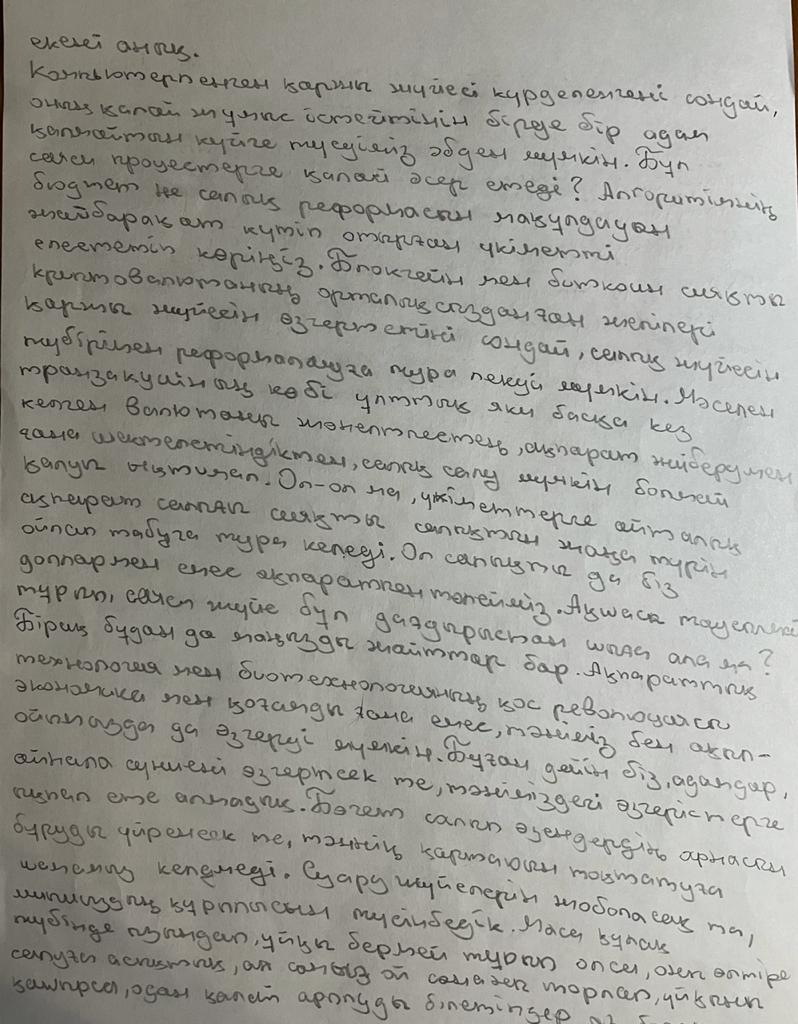 екені анық.
Компьютерленген қаржы жүйесі күрделенгені сондай,
оның қалай жұмыс істейтінін бірде бір адам
қалмайтын күйге түсуіміз әбден мүмкін. Бұл
саяси процестерге қалай әсер етеді? Алгоритмнің
бюджет не салық реформасын мақұлдауын
жайбарақат күтіп отырған үкіметті
елестетіп көріңіз. Блокчейн мен биткоин сияқты
криптовалютаның орталықсызданған желілері
қаржы жүйесін өзгертетіні сондай, салық жүйесін
түбірімен реформалауға тура келуі мүмкін. Мәселен
транзакцияның көбі ұлттық яки басқа кез
келген валютаны жөнелтпестен, ақпарат жіберумен
ғана шектелетіндіктен, салық салу мүмкін болмай
қалуы ықтимал. Ол-ол ма, үкіметтерге айталық
ақпарат салығы сияқты салықтың жаңа түрін
ойлап табуға тура келеді. Ол салықты да біз
доллармен емес ақпаратпен төлейміз. Ақшасы таусылмай
тұрып, саяси жүйе бұл дағдарыстан шыға ала ма?
Бірақ бұдан да маңызды жайттар бар. Ақпараттық
технология мен биотехнологияның қос революциясы
экономика мен қоғамды ғана емес, тәніміз бен ақыл-
ойымызды да өзгертуі мүмкін. Бұған дейін біз, адамдар,
айнала сүйкімені өзгертсек те, тәніміздегі өзгерістерге
ықпал ете алмадық. Бөгет салып өзендердің арнасын
бұруды үйренсек те, тәннің қартаюын тоқтатуға
шамамыз келмеді. Суару жүйелерін жобаласақ та,
миымыздың құрылысын түсінбедік. Маса құлақ
түбінде ызыңдап, ұйқы бермей тұрып алса, оны өлтіре
салуға асықтық, ал сансыз ой санаңды торлап, ұйқыны
қашырса, одан қалай арылуды білетіндер